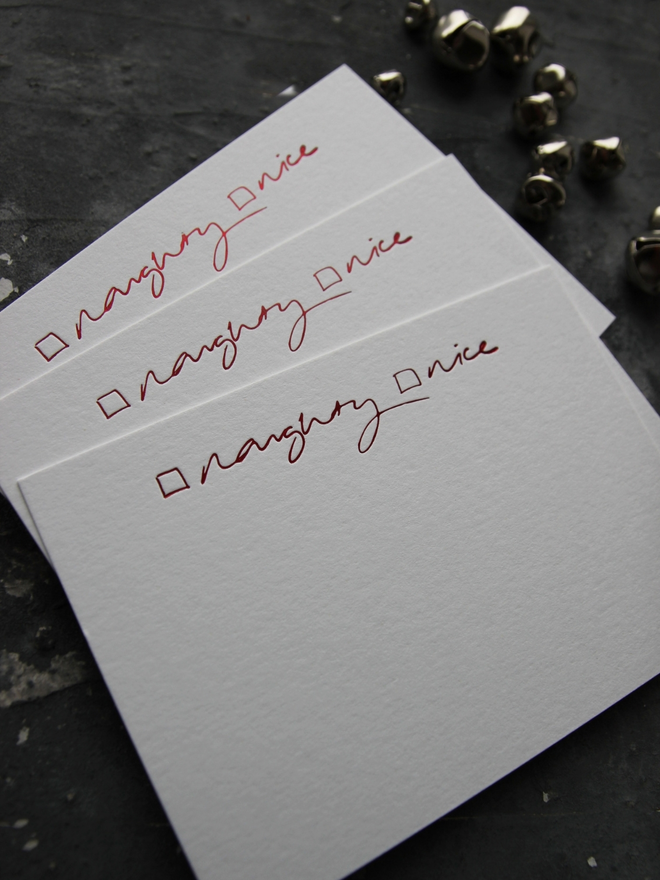 ☐ naughty ☐ nice
☐ naughty ☐ nice
☐ naughty ☐ nice